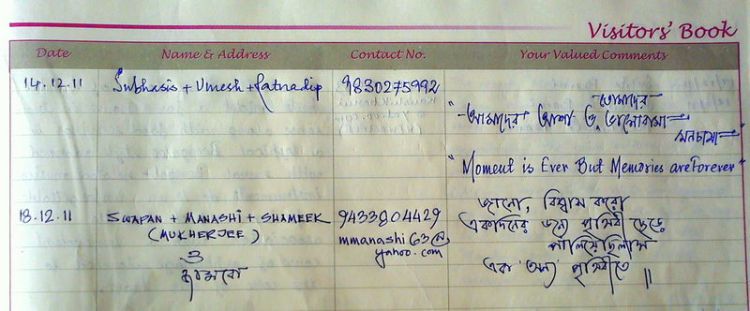 Visitors' Book
Date Name & Address Contact No. Your Valued Comments
14.12.11 Subhasis + Umesh + Ratnadip 9830275992
তোমাদের
"আমাদের আশা ও ভালোবাসা
"Moment is Ever But Memories are Forever"
18.12.11 SWAPAN + MANASHI + SHAMEEK 9433804429
(MUKHERJEE) mmanashi63@
yahoo.com
ও
জানো, বিশ্বাস করো
একদিনের জন্যে পৃথিবী ছেড়ে
পালিয়েছিলাম
এক অন্য পৃথিবীতে ॥